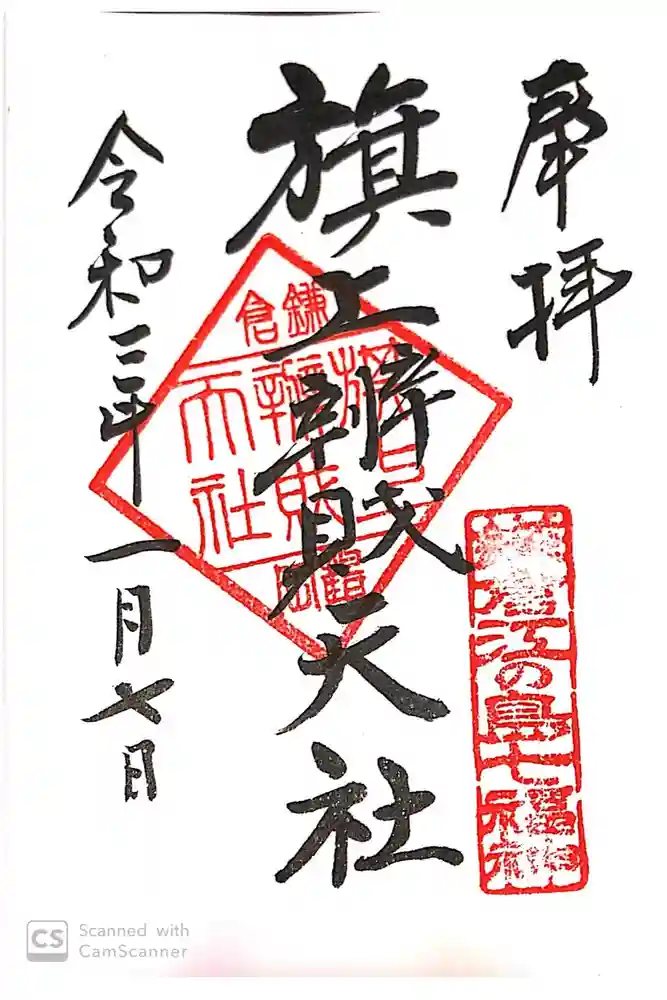 奉拝
旗上辨財天社
令和三年一月七日
鎌倉
旗上
辨財
天社
鎌倉江の島七福神
CS Scanned with
CamScanner